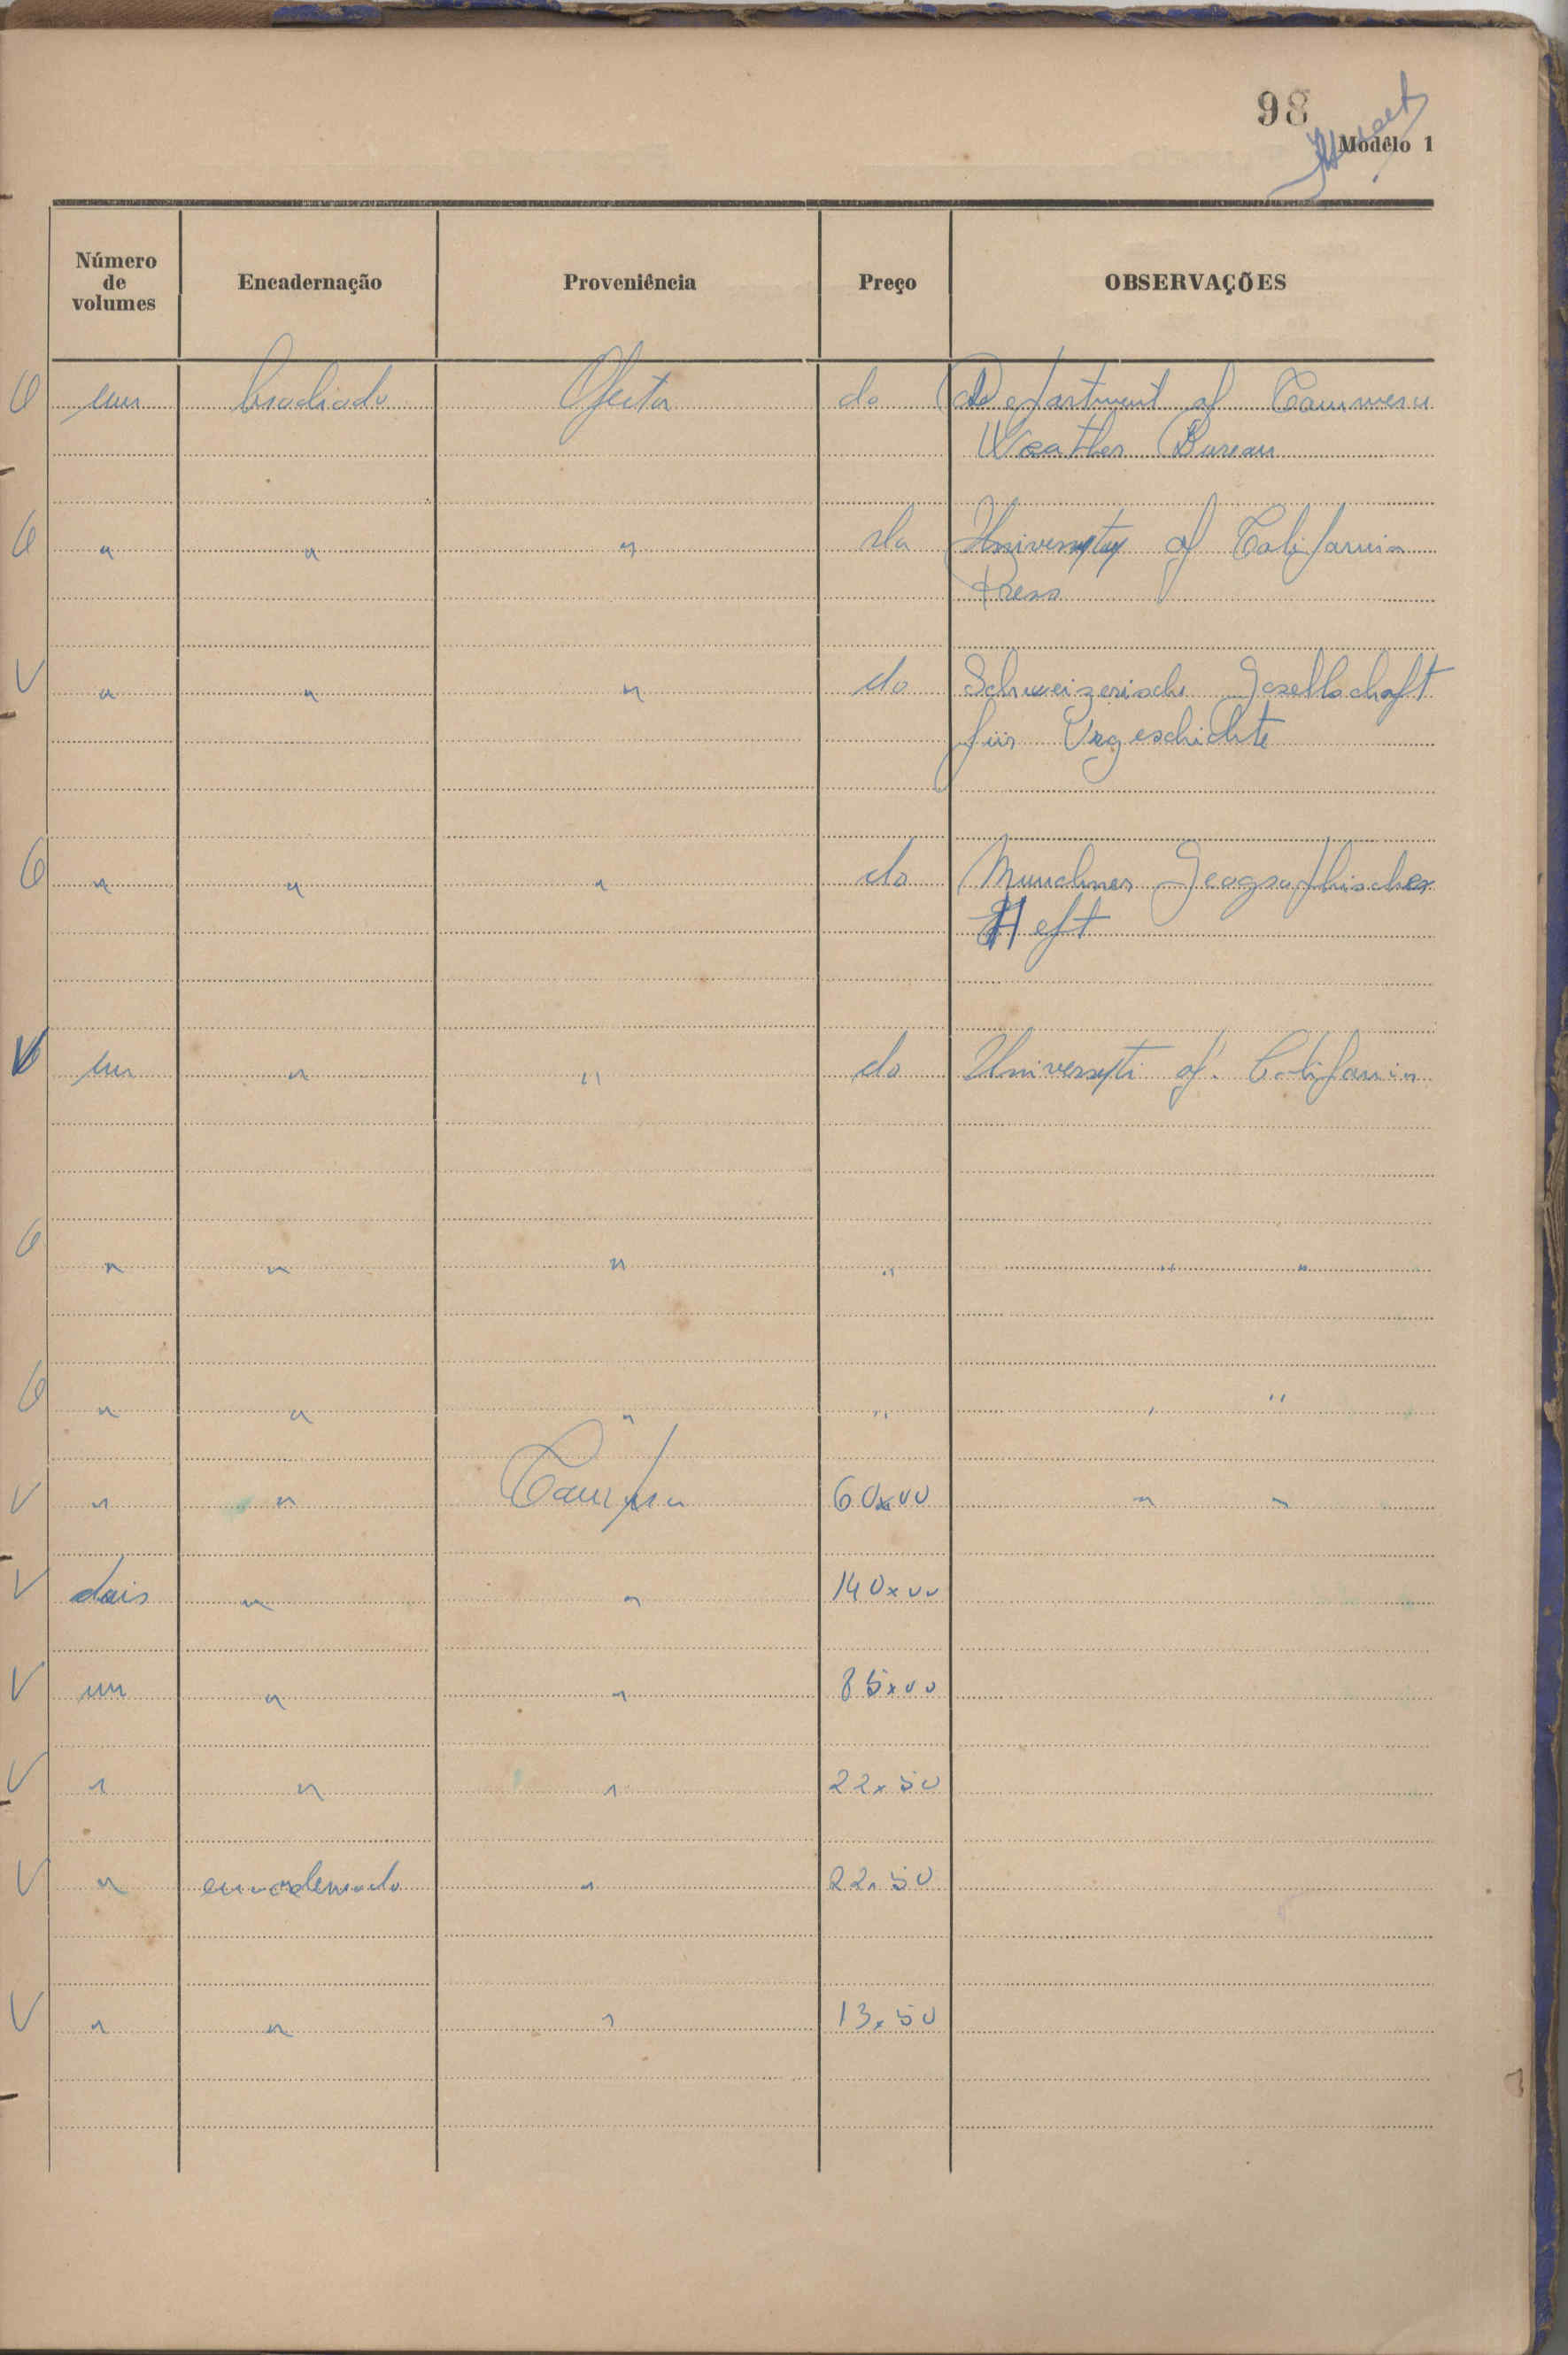 98
Modêlo 1
Número de volumes Encadernação Proveniência Preço OBSERVAÇÕES
um brochado Oferta do Department of Commerce
Weather Bureau
" " " da University of California
Press
" " " do Schweizerische Gesellschaft
für Urgeschichte
" " " do Munchner Geographischer
Heft
um " " do Universyti of California
" " " " " "
" " " " " "
" " Compra 60x00 " "
dois " " 140x00
um " " 85x00
" " " 22x50
" encadernado " 22x50
" " " 13x50